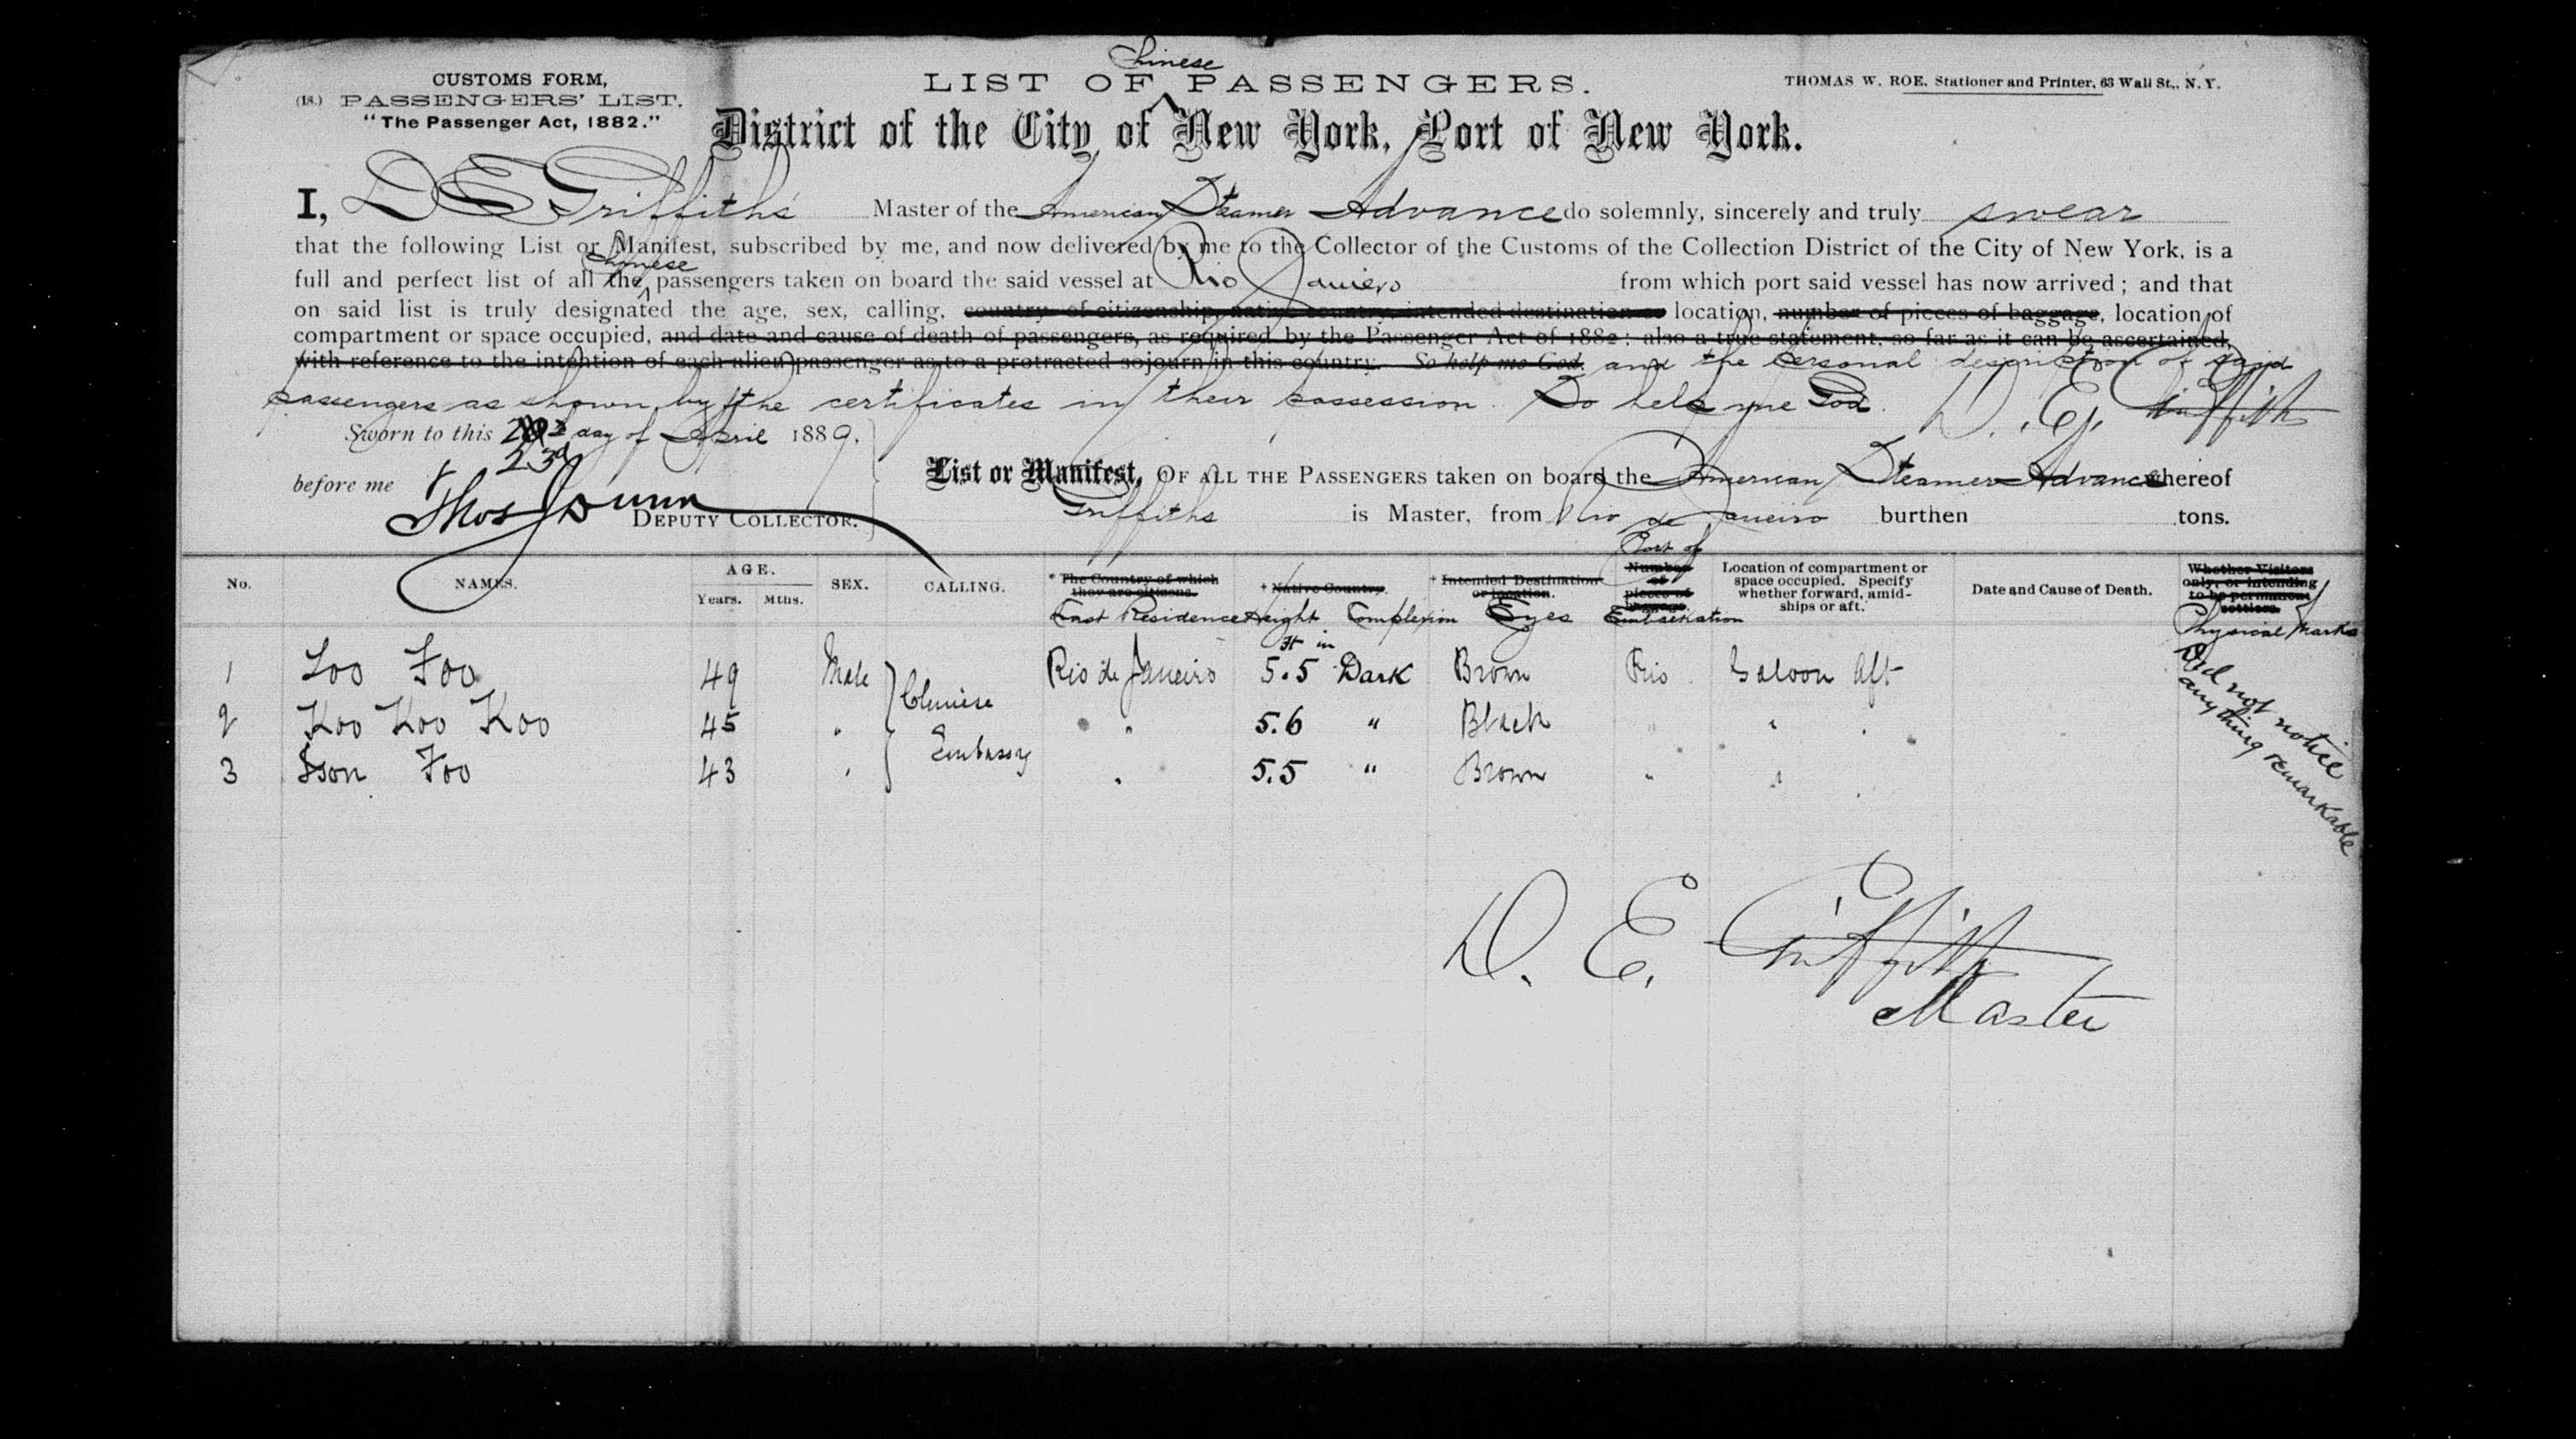 Chinese
LIST OF PASSENGERS.
CUSTOMS FORM,
(18.) PASSENGERS' LIST.
"The Passenger Act, 1882."
THOMAS W. ROE. Stationer and Printer, 63 Wall St,. N. Y.
District of the City of New York, Port of New York.
I, D E Griffiths Master of the American Steamer Advance do solemnly, sincerely and truly swear
that the following List or Manifest, subscribed by me, and now delivered by me to the Collector of the Customs of the Collection District of the City of New York, is a
Chinese
full and perfect list of all the passengers taken on board the said vessel at Rio Janiero from which port said vessel has now arrived; and that
on said list is truly designated the age, sex, calling, country of citizenship, native country, intended destination or location, number of pieces of baggage, location of
compartment or space occupied, and date and cause of death of passengers, as required by the Passenger Act of 1882; also a true statement, so far as it can be ascertained,
with reference to the intention of each alien passenger as to a protracted sojourn in this country. So help me God. and the personal description of said
passengers as shown by the certificates in their possession. So help me God. D. E. Griffith
Sworn to this day of April 1889.
23d
before me
Thos Dunn
DEPUTY COLLECTOR.
List or Manifest, OF ALL THE PASSENGERS taken on board the American Steamer Advance whereof
Griffiths is Master, from Rio de Janeiro burthen tons.
No. NAMES. AGE. Years. Mths. SEX. CALLING. * The Country of which they are citizens. † Native Country. † Intended Destination or location. Number of pieces of baggage. Location of compartment or space occupied. Specify whether forward, amidships or aft. Date and Cause of Death. Whether Visitors only, or intending to be permanent settlers.
Last Residence Height Complexion Eyes Port of Embarkation Physical Marks
ft in
1 Loo Foo 49 Male Chinese Rio de Janeiro 5.5 Dark Brown Rio Saloon Aft
2 Koo Koo Koo 45 " Embassy " 5.6 " Black " "
3 Sson Foo 43 " " 5.5 " Brown " "
Did not notice
anything remarkable
D. E. Griffith
Master